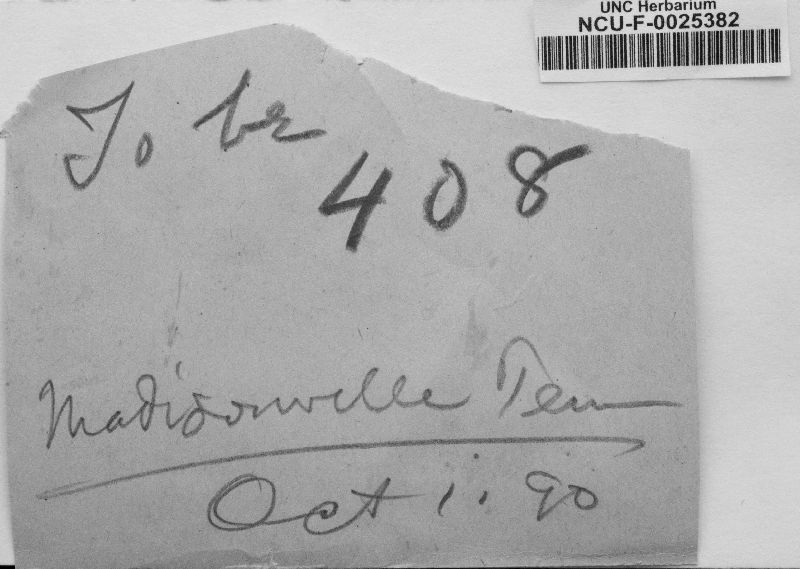 UNC Herbarium
NCU-F-0025382
To be
408
Madisonville Tenn
Oct 1. 90